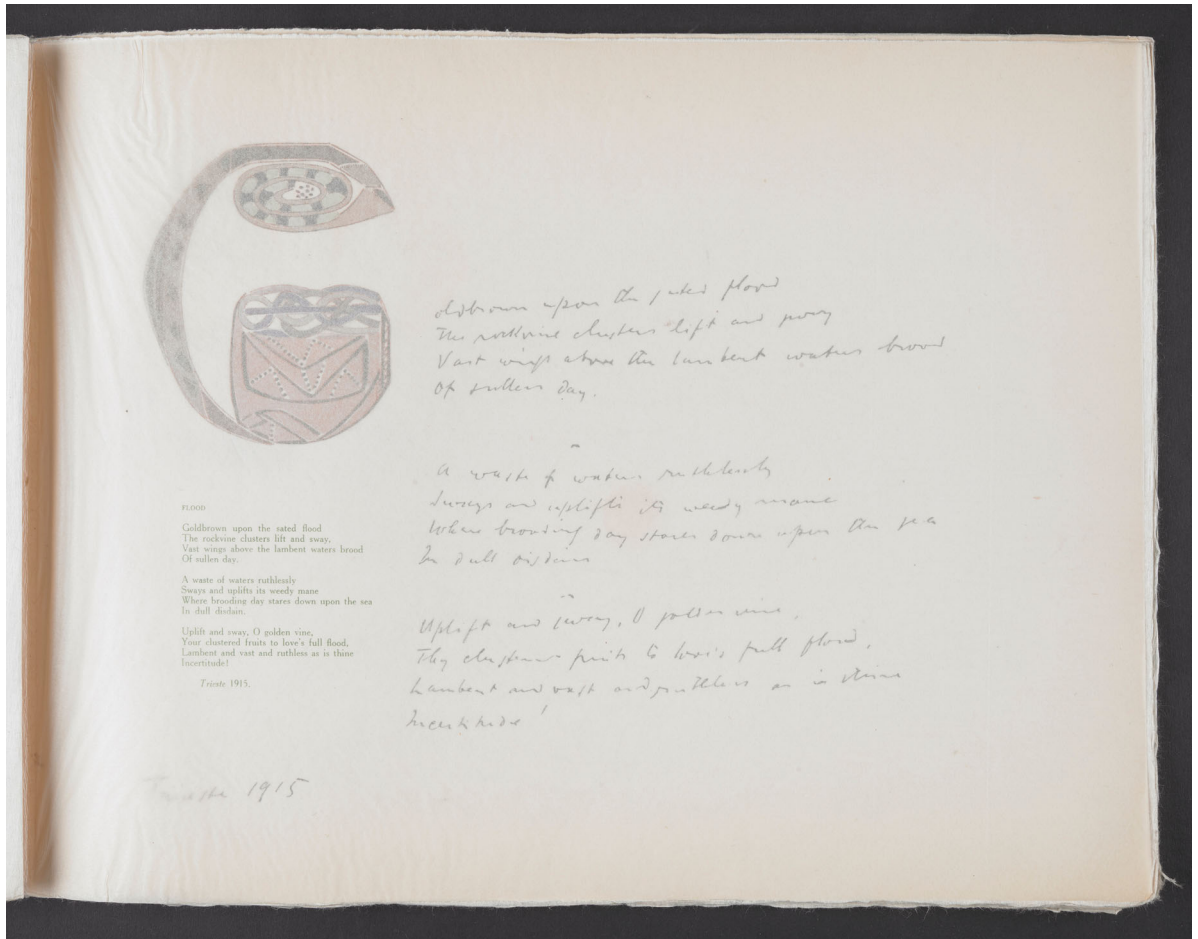 Goldbrown upon the sated flood
The rockvine clusters lift and sway
Vast wings above the lambent waters brood
Of sullen day.
A waste of waters ruthlessly
Sways and uplifts its weedy mane
Where brooding day stares down upon the sea
In dull disdain
Uplift and sway, O golden vine,
Thy clustered fruits to love's full flood,
Lambent and vast and ruthless as is thine
Incertitude!
Trieste 1915
FLOOD
Goldbrown upon the sated flood
The rockvine clusters lift and sway,
Vast wings above the lambent waters brood
Of sullen day.
A waste of waters ruthlessly
Sways and uplifts its weedy mane
Where brooding day stares down upon the sea
In dull disdain.
Uplift and sway, O golden vine,
Your clustered fruits to love's full flood,
Lambent and vast and ruthless as is thine
Incertitude!
Trieste 1915.